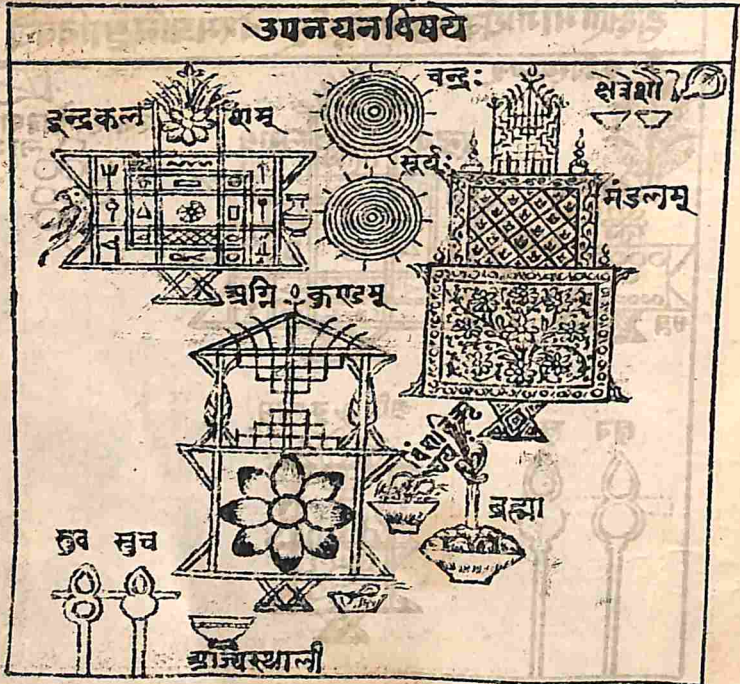 उपनयनविषये
चन्द्रः
क्षेत्रेशौ
इन्द्रकल शम्
सूर्यः
मंडलम्
अग्नि कुण्डम्
ब्रह्मा
स्रुव स्रुच
आज्यस्थाली